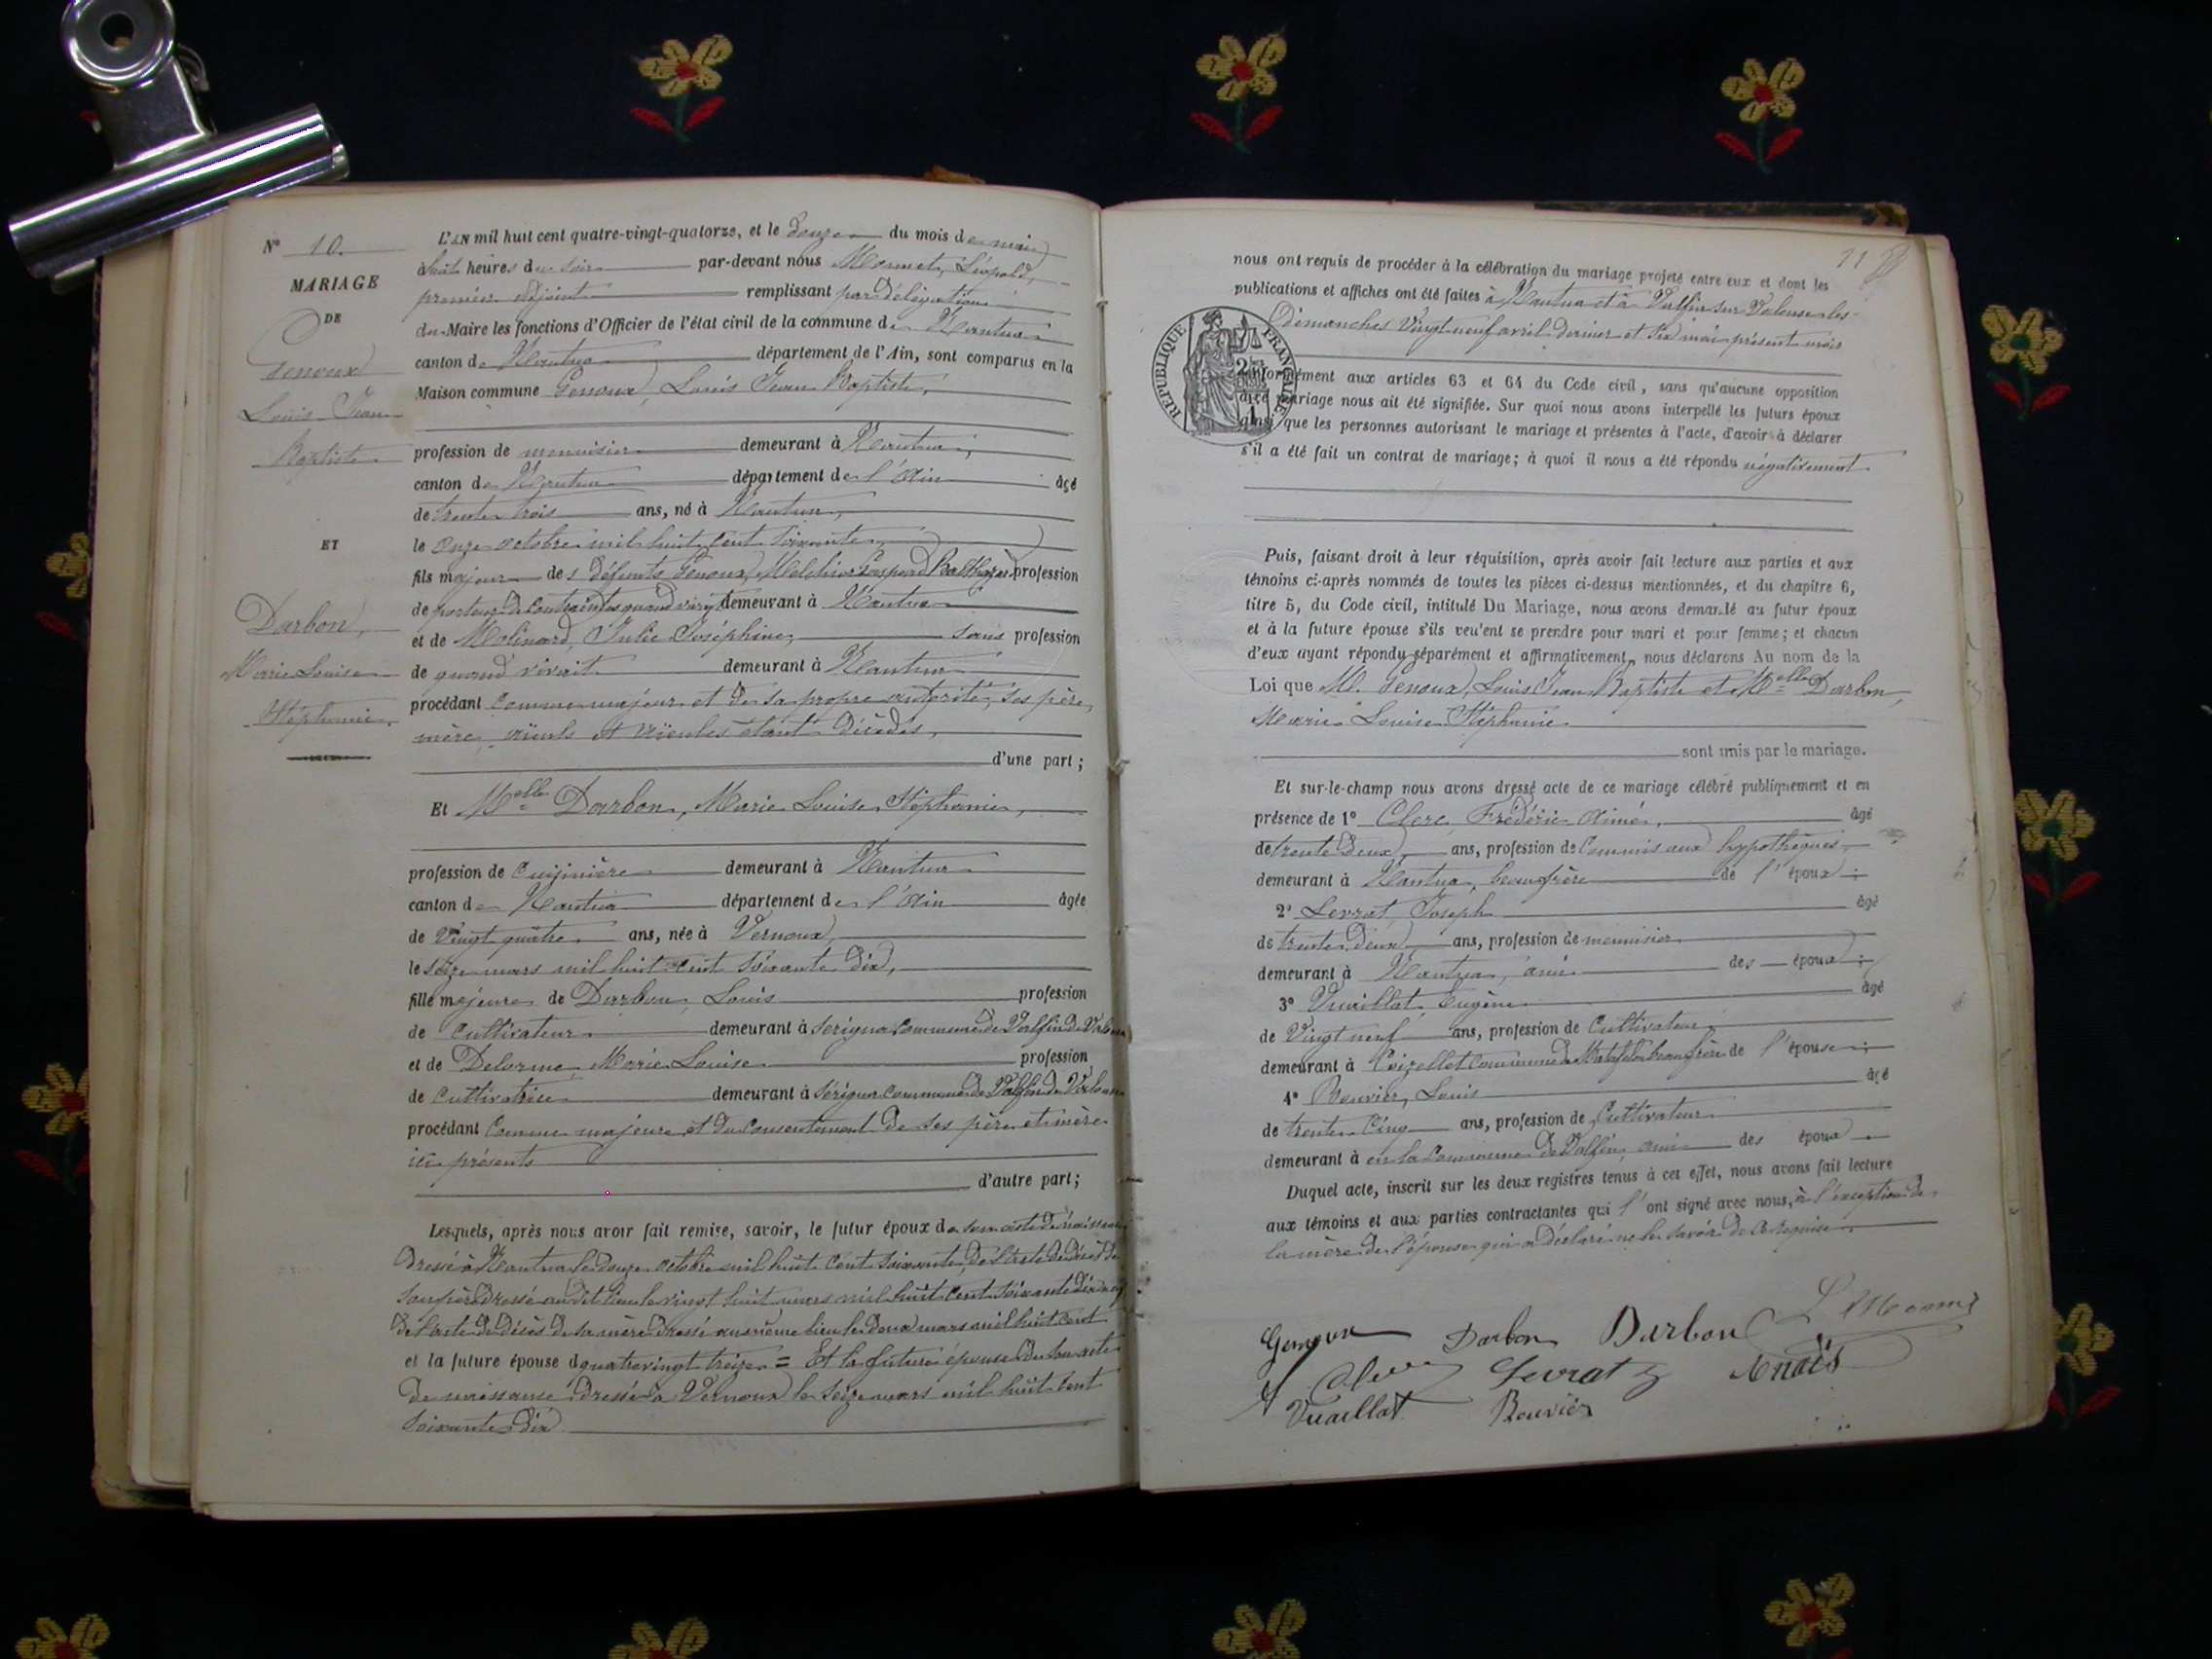 N° 10.
MARIAGE
DE
Genoux
Louis Jean
Baptiste
ET
Darbon,
Marie Louise
Stéphanie.
L'AN mil huit cent quatre-vingt-quatorze, et le douze du mois de mai
à huit heures du soir par-devant nous Mormet, Léopold,
premier adjoint remplissant par délégation
du Maire les fonctions d'Officier de l'état civil de la commune de Nantua
canton de Nantua département de l'Ain, sont comparus en la
Maison commune Genoux, Louis Jean Baptiste,
profession de menuisier demeurant à Nantua,
canton de Nantua département de l'Ain âgé
de trente trois ans, né à Nantua,
le onze octobre mil huit cent soixante,
fils majeur des défunts Genoux, Melchior Gaspard Balthazar profession
de porteur de contraintes quand vivait demeurant à Nantua
et de Molinard, Julie Joséphine, sans profession
de quand vivait demeurant à Nantua
procédant comme majeur et de sa propre autorité, ses père,
mère, aïeuls et aïeules étant décédés,
d'une part ;
Et Melle Darbon, Marie Louise, Stéphanie,
profession de cuisinière demeurant à Nantua
canton de Nantua département de l'Ain âgée
de vingt quatre ans, née à Vernoux,
le seize mars mil huit cent soixante dix,
fille majeure de Darbon, Louis profession
de cultivateur demeurant à commune de Valfin
et de Delorme, Marie Louise profession
de cultivatrice demeurant à commune de Valfin
procédant comme majeure et du consentement de ses père et mère
ici présents
d'autre part ;
Lesquels, après nous avoir fait remise, savoir, le futur époux de son acte de naissance
dressé à Nantua le douze octobre mil huit cent soixante, de l'acte de décès de
son père dressé au dit lieu le vingt huit mars mil huit cent soixante dix
de l'acte de décès de sa mère dressé au même lieu le deux mars mil huit cent
et la future épouse d quatre vingt treize = Et la future épouse de son acte
de naissance dressé à Vernoux le seize mars mil huit cent
soixante dix
11
nous ont requis de procéder à la célébration du mariage projeté entre eux et dont les
publications et affiches ont été faites à Nantua et à Valfin sur Valouse les
dimanches vingt neuf avril dernier et six mai présent mois
RÉPUBLIQUE FRANÇAISE
conformément aux articles 63 et 64 du Code civil, sans qu'aucune opposition
audit mariage nous ait été signifiée. Sur quoi nous avons interpellé les futurs époux
ainsi que les personnes autorisant le mariage et présentes à l'acte, d'avoir à déclarer
s'il a été fait un contrat de mariage; à quoi il nous a été répondu négativement
Puis, faisant droit à leur réquisition, après avoir fait lecture aux parties et aux
témoins ci-après nommés de toutes les pièces ci-dessus mentionnées, et du chapitre 6,
titre 5, du Code civil, intitulé Du Mariage, nous avons demandé au futur époux
et à la future épouse s'ils veulent se prendre pour mari et pour femme; et chacun
d'eux ayant répondu séparément et affirmativement, nous déclarons Au nom de la
Loi que M. Genoux, Louis Jean Baptiste et Melle Darbon,
Marie Louise Stéphanie
sont unis par le mariage.
Et sur-le-champ nous avons dressé acte de ce mariage célébré publiquement et en
présence de 1° Clerc, Frédéric Aimé, âgé
de trente deux ans, profession de commis aux hypothèques
demeurant à Nantua, beau frère de l'époux ;
2° Levrat, Joseph âgé
de trente deux ans, profession de menuisier
demeurant à Nantua, ami des époux ;
3° Vuaillat, Eugène âgé
de vingt neuf ans, profession de cultivateur
demeurant à Coizellet commune de Matafelon beau frère de l'épouse ;
4° Bouvier, Louis âgé
de trente cinq ans, profession de cultivateur
demeurant à en la commune de Valfin, ami des époux.
Duquel acte, inscrit sur les deux registres tenus à cet effet, nous avons fait lecture
aux témoins et aux parties contractantes qui l'ont signé avec nous, à l'exception de
la mère de l'épouse qui a déclaré ne le savoir de ce requise.
Genoux Darbon Darbon L Mormet
Clerc Levrat
Vuaillat Bouvier